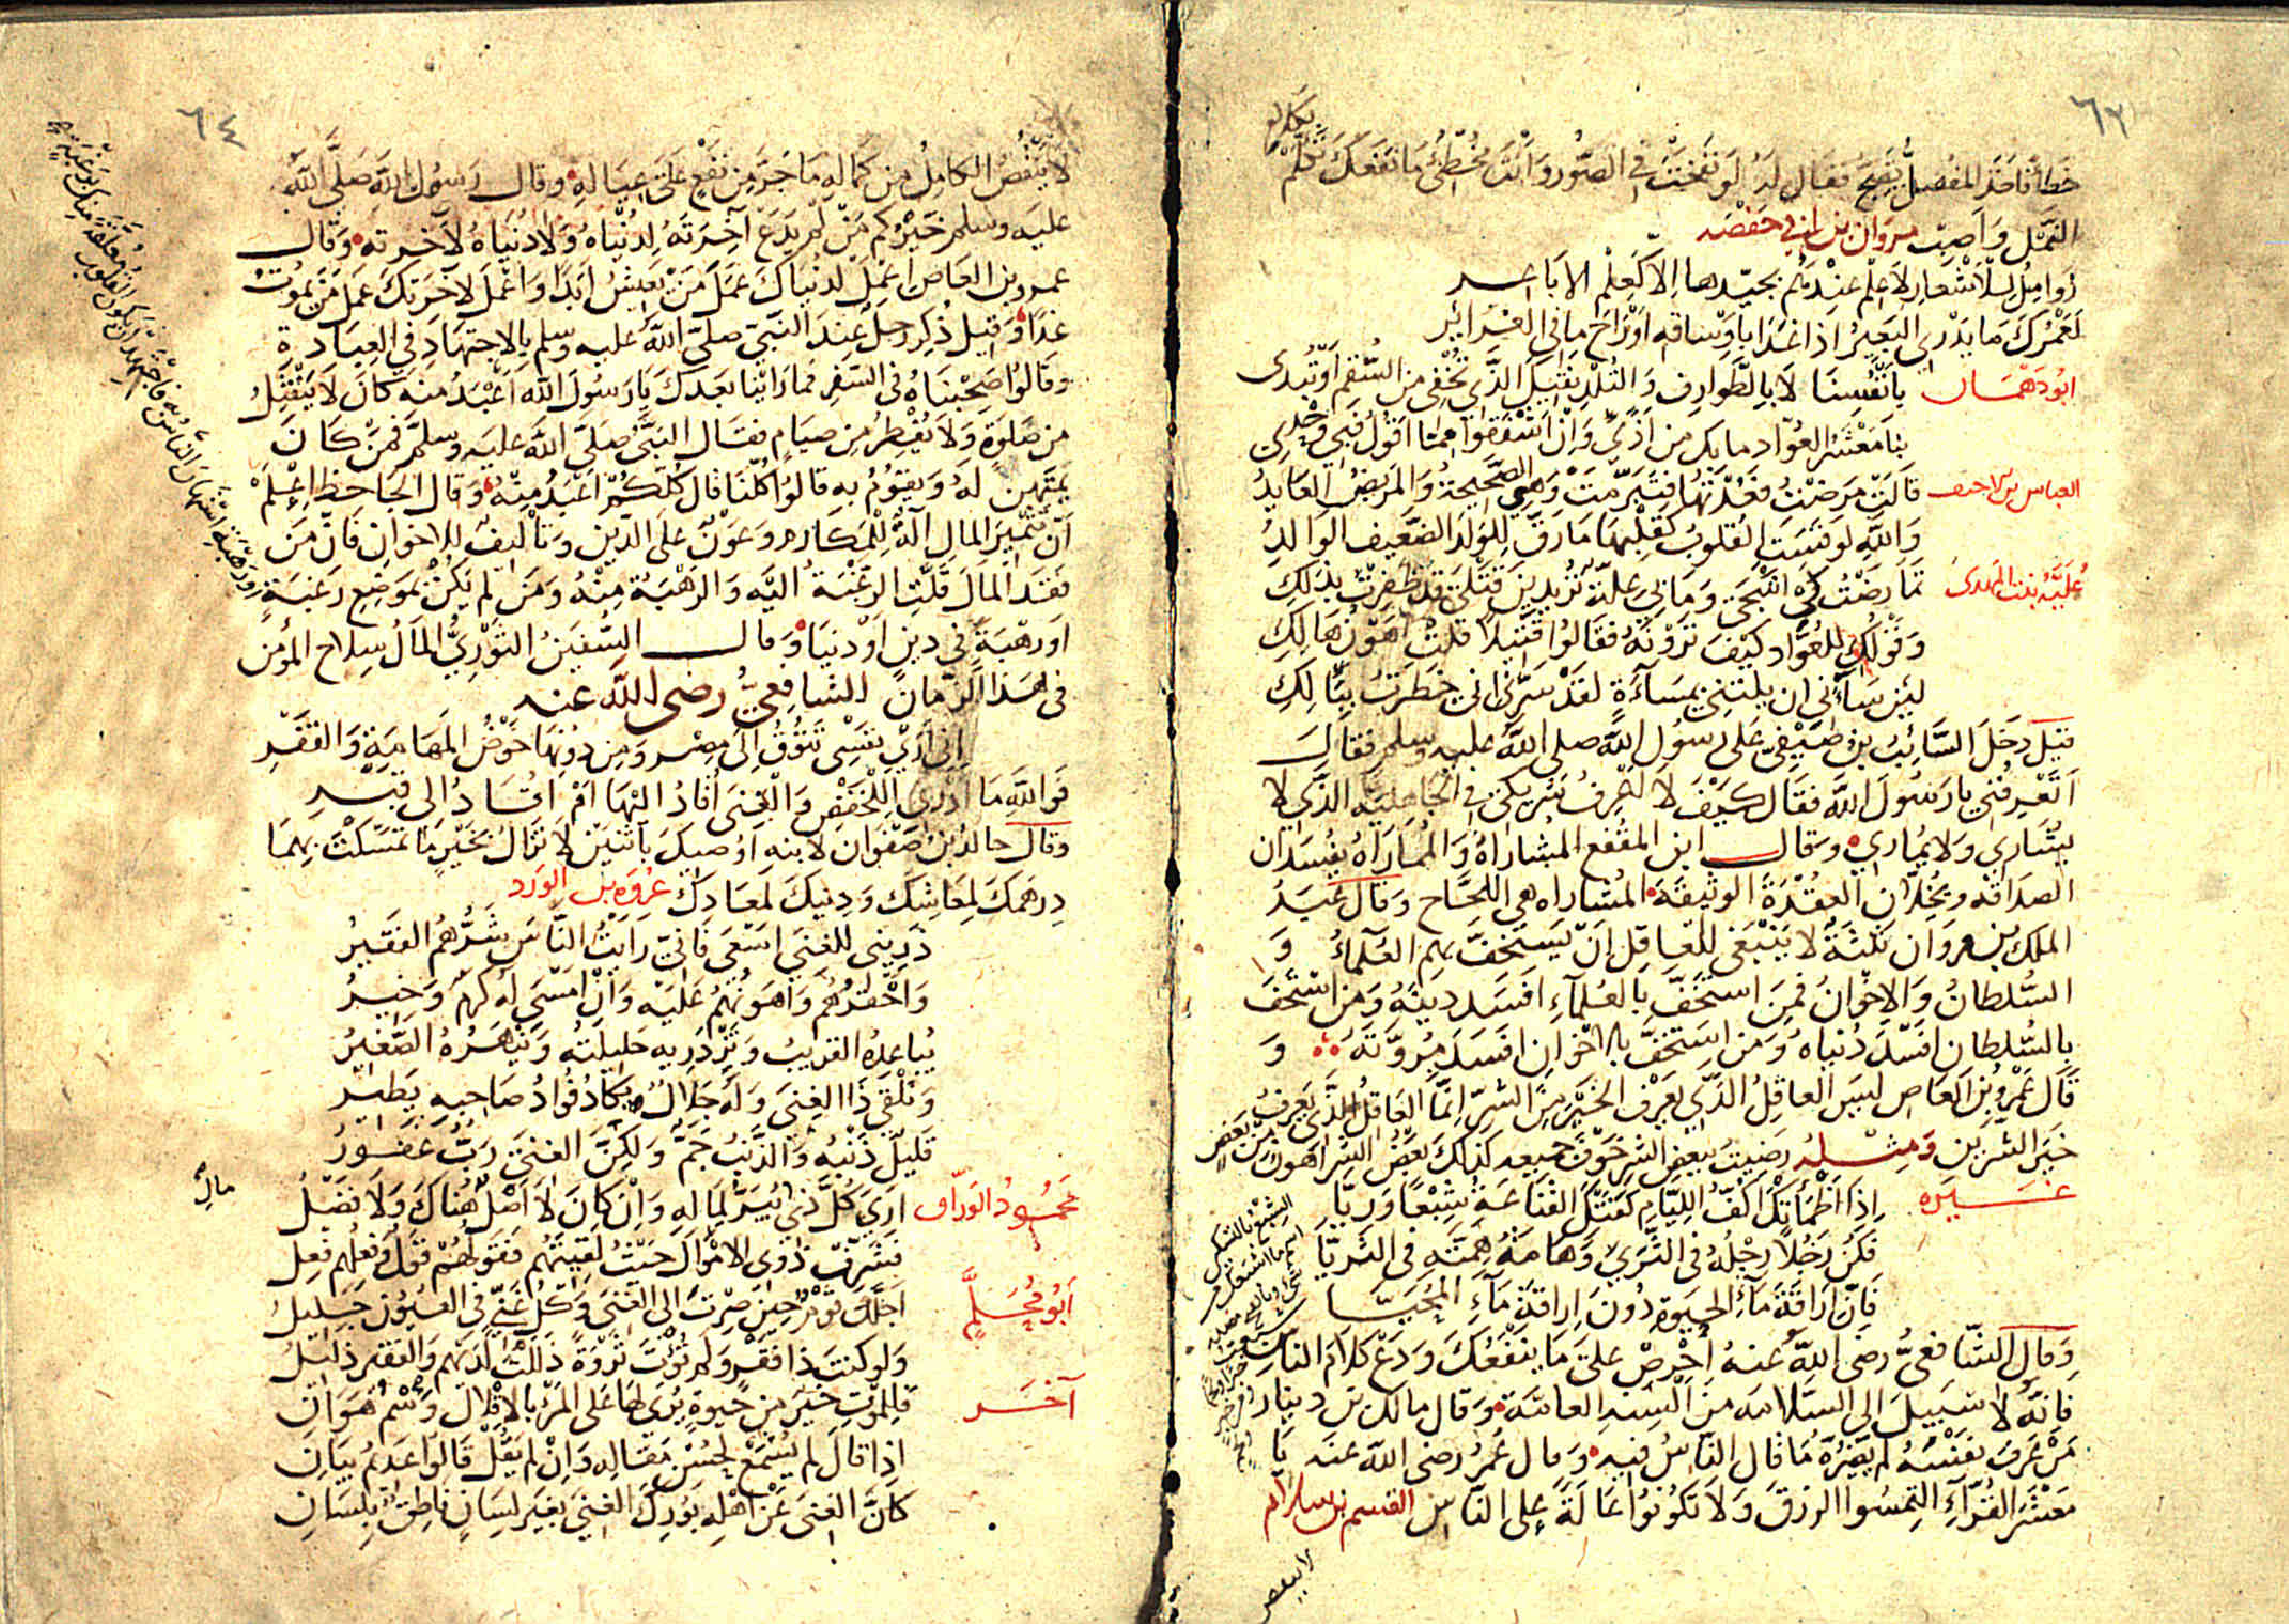 ٦٣
خطأ فاخذ المفضل يصيح فقال له لو نفخت في الصور وانت مخطئ ما نفعك تكلم
بكلام
النمل واصبت مروان بن ابي حفصه
زوامل للاشعار لا علم عندهم بجيدها الا كعلم الاباعر
لعمرك ما يدري البعير اذا غدا باوساقه او راح ما في الغرائر
ابو دهمان بانفسنا لا بالطوارف والتلد نقيك الذي تخفي من السقم او تبدى
بنا معشر العواد ما بك من اذى وان اشفقوا مما اقول فبي وحدي
العباس بن الاحنف قالت مرضت فعدتها فتبرمت وهي الصحيحة والمريض العايد
والله لو قست القلوب كقلبها ما رق للولد الضعيف الوالد
علية بنت المهدى تمارضت كي اشجى وما بي علة تريدين قتلي قد ظفرت بذلك
وقولك للعواد كيف ترونه فقالوا قتيلا قلت اهون هالك
لئن ساءني ان نلتني بمساءة لقد سرني اني خطرت ببالك
قيل دخل السائب بن صيفي على رسول الله صلى الله عليه وسلم فقال
اتعرفني يا رسول الله فقال كيف لا اعرف شريكي في الجاهلية الذي لا
يشاري ولا يماري وقال ابن المقفع المشاراة والمماراة يفسدان
الصداقة ويحلان العقدة الوثيقة المشاراه هي اللجاج وقال عبد
الملك بن مروان ثلثة لا ينبغي للعاقل ان يستخف بهم العلماء و
السلطان والاخوان فمن استخف بالعلماء افسد دينه ومن استخف
بالسلطان افسد دنياه ومن استخف بالاخوان افسد مروته و
قال عمرو بن العاص ليس العاقل الذي يعرف الخير من الشر انما العاقل الذي يعرف
خير الشرين ومثله رضيت ببعض الشر خوف جميعه كذلك بعض الشر اهون من بعض
غيره اذا اظمأتك اكف الليام كفتك القناعة شبعا وريا
فكن رجلا رجله في الثرى وهامة همته في الثريا
فان اراقة ماء الحيوة دون اراقة ماء المحيا
وقال الشافعي رضى الله عنه احرص على ما ينفعك ودع كلام الناس
فانه لا سبيل الى السلامة من السنة العامة وقال مالك بن دينار
من عرف نفسه لم يضره ما قال الناس فيه وقال عمر رضى الله عنه يا
معشر القراء التمسوا الرزق ولا تكونوا عالة على الناس القسم بن سلام
لا ينقص
٦٤
لا ينقص الكامل من كماله ما جر من نفع على عياله وقال رسول الله صلى الله
عليه وسلم خيركم من لم يدع آخرته لدنياه ولا دنياه لآخرته وقال
عمرو بن العاص اعمل لدنياك عمل من يعيش ابدا واعمل لآخرتك عمل من يموت
غدا وقيل ذكر رجل عند النبي صلى الله عليه وسلم بالاجتهاد في العبادة
وقالوا صحبناه في السفر فما راينا بعدك يا رسول الله اعبد منه كان لا ينفتل
من صلوة ولا يفطر من صيام فقال النبي صلى الله عليه وسلم فمن كان
يمتهن له ويقوم به قالوا كلنا قال كلكم اعبد منه وقال الجاحظ اعلم
ان تثمير المال آلة للمكارم وعون على الدين وتاليف للاخوان فان من
فقد المال قلت الرغبة اليه والرهبة منه ومن لم يكن بموضع رغبة
او رهبة في دين او دنيا وقال السفين الثوري المال سلاح المؤمن
في هذا الزمان الشافعي رضى الله عنه
اني ارى نفسى تتوق الى مصر ومن دونها خوض المهامة والفقر
فوالله ما ادري اللخفض والغنى اقاد اليها ام اقاد الى قبر
وقال خالد بن صفوان لابنه اوصيك باثنين لا تزال بخير ما تمسكت بهما
درهمك لمعاشك ودينك لمعادك عروه بن الورد
ذريني للغنى اسعى فاني رايت الناس شرهم الفقير
واحقرهم واهونهم عليه وان امسى له كرم وخير
يباعده القريب وتزدريه حليلته وينهره الصغير
وتلقى ذا الغنى وله جلال يكاد فؤاد صاحبه يطير
قليل ذنبه والذنب جم ولكن الغنى رب غفور
محمود الوراق ارى كل ذي يسر لماله وان كان لا اصل هناك ولا فضل
مال
فشرف ذوي الاموال حيث لقيتهم فقولهم قول وفعلهم فعل
ابو محلم اجلك قوم حين صرت الى الغنى وكل غني في العيون جليل
ولو كنت ذا فقر ولم تؤت ثروة ذللت لديهم والفقير ذليل
آخر فللموت خير من حيوة يرى لها على المرء بالاقلال وسم هوان
اذا قال لم يسمع لحسن مقاله وان لم يقل قالوا عديم بيان
كان الغنى عن اهله بورك الغنى بغير لسان ناطق بلسان